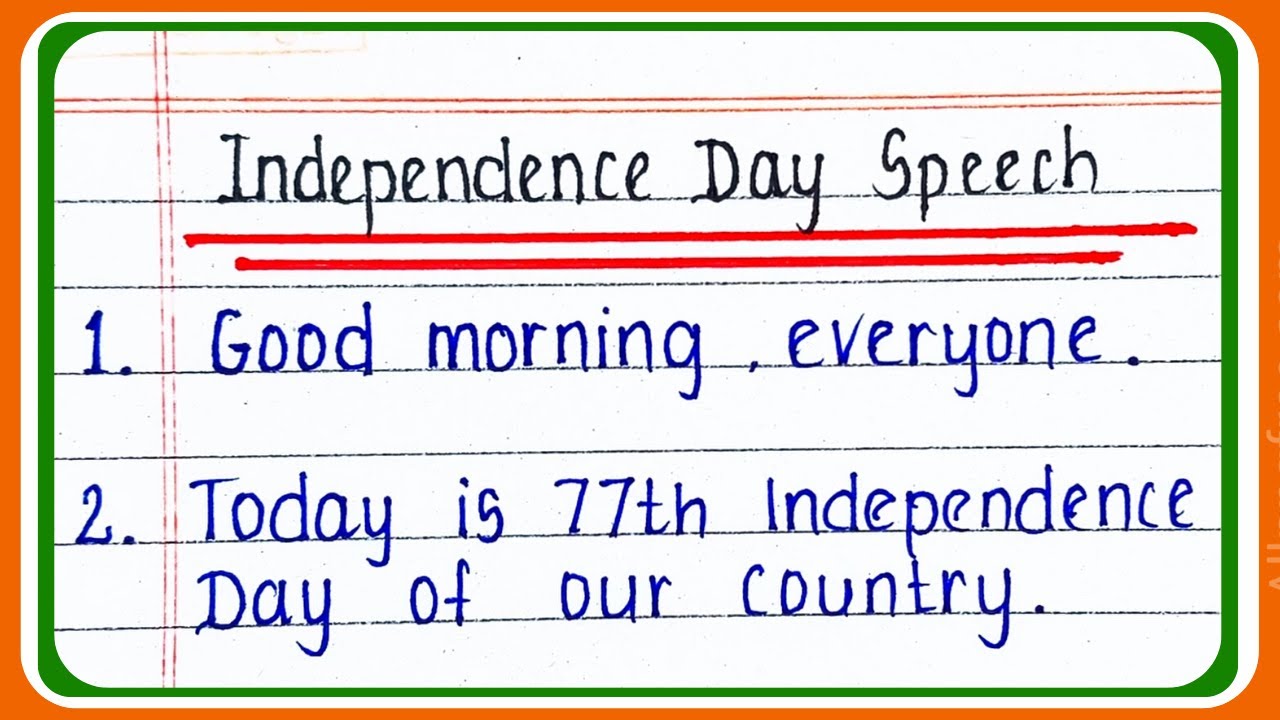 Independence Day Speech
1. Good morning, everyone.
2. Today is 77th Independence
Day of our country.